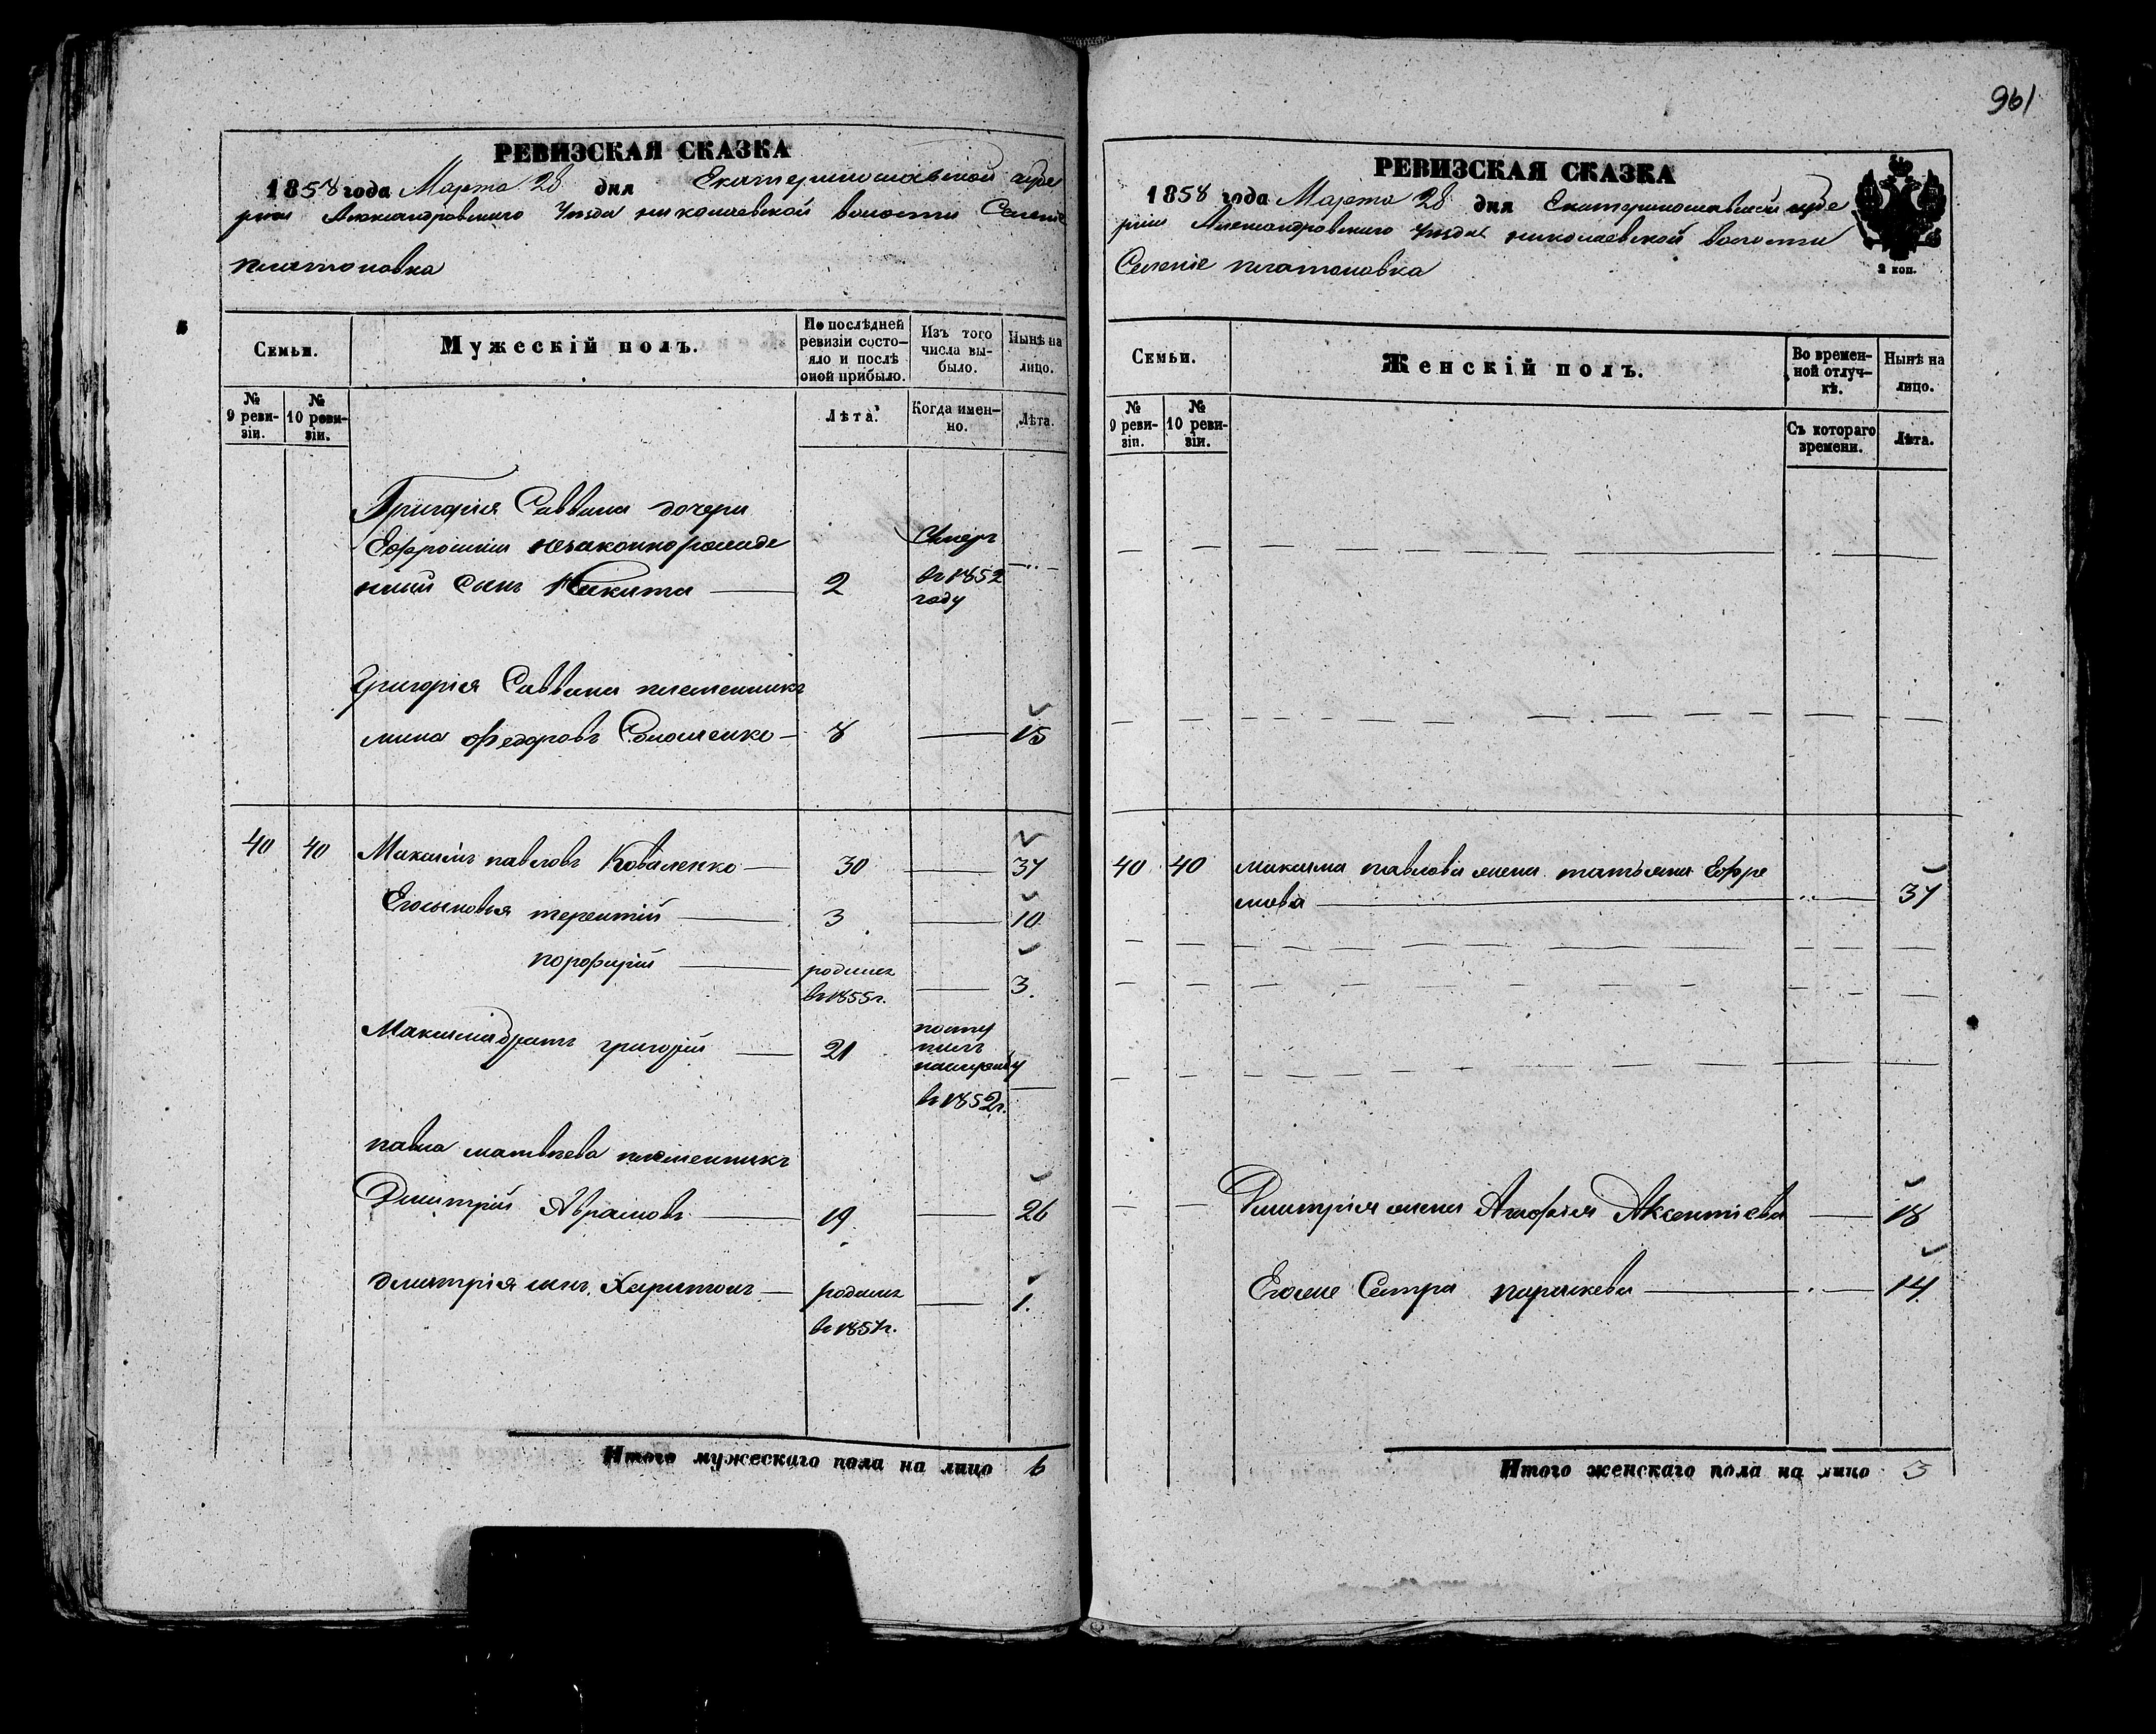 961
РЕВИЗСКАЯ СКАЗКА
1858 года Марта 28 дня Екатеринославской губе
рніи Александровского Уезда николаевской волости Селеніе
платоновка
Семьи.
Мужескій полъ.
По послѣдней ревизіи состояло и послѣ оной прибыло.
Изъ того числа выбыло.
Нынѣ на лицо.
№ 9 ревизіи.
№ 10 ревизіи.
Лѣта.
Когда именно.
Лѣта.
Григорія Саввина дочери
Ефросиніи незаконнорожде
нный сынъ Никита 2 Умеръ въ 1852 году
Григорія Саввина племенникъ
мина Федоровъ Соношенко 8 15
40 40 Максимъ павловъ Коваленко 30 37
Егосыновья терентій 3 10
порфирій родился въ 1855 г. 3.
Максима братъ григорій 21 посту пилъ въ 1852 г.
павла матвѣева племенникъ
Дмитрій Аврамовъ 19 26
Дмитрія сынъ Харитонъ родился въ 1857 г. 1.
Итого мужескаго пола на лицо 6
РЕВИЗСКАЯ СКАЗКА
1858 года Марта 28 дня Екатеринославской губе
рніи Александровского Уезда николаевской волости
Селеніе платоновка
2 коп.
Семьи.
Женскій полъ.
Во временной отлучкѣ.
Нынѣ на лицо.
№ 9 ревизіи.
№ 10 ревизіи.
Съ котораго времени.
Лѣта.
40 40 максима павлова жена татьяна Ефре
мова 37
Дмитрія жена Агафія Аксентіева 18
Егоже Сестра параскева 14
Итого женскаго пола на лицо 3